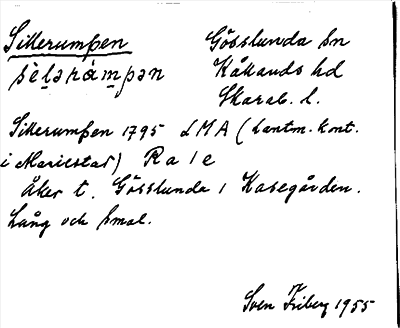 Sillerumpen
Gösslunda sn
sèlərám̲pən
Kållands hd
Skarab. l.
Sillerumpen 1795 LMA (Lantm. kont.
i Mariestad) Ra 1e
Åker t. Gösslunda 1 Kasegården.
Lång och smal.
Sven Friberg 1955